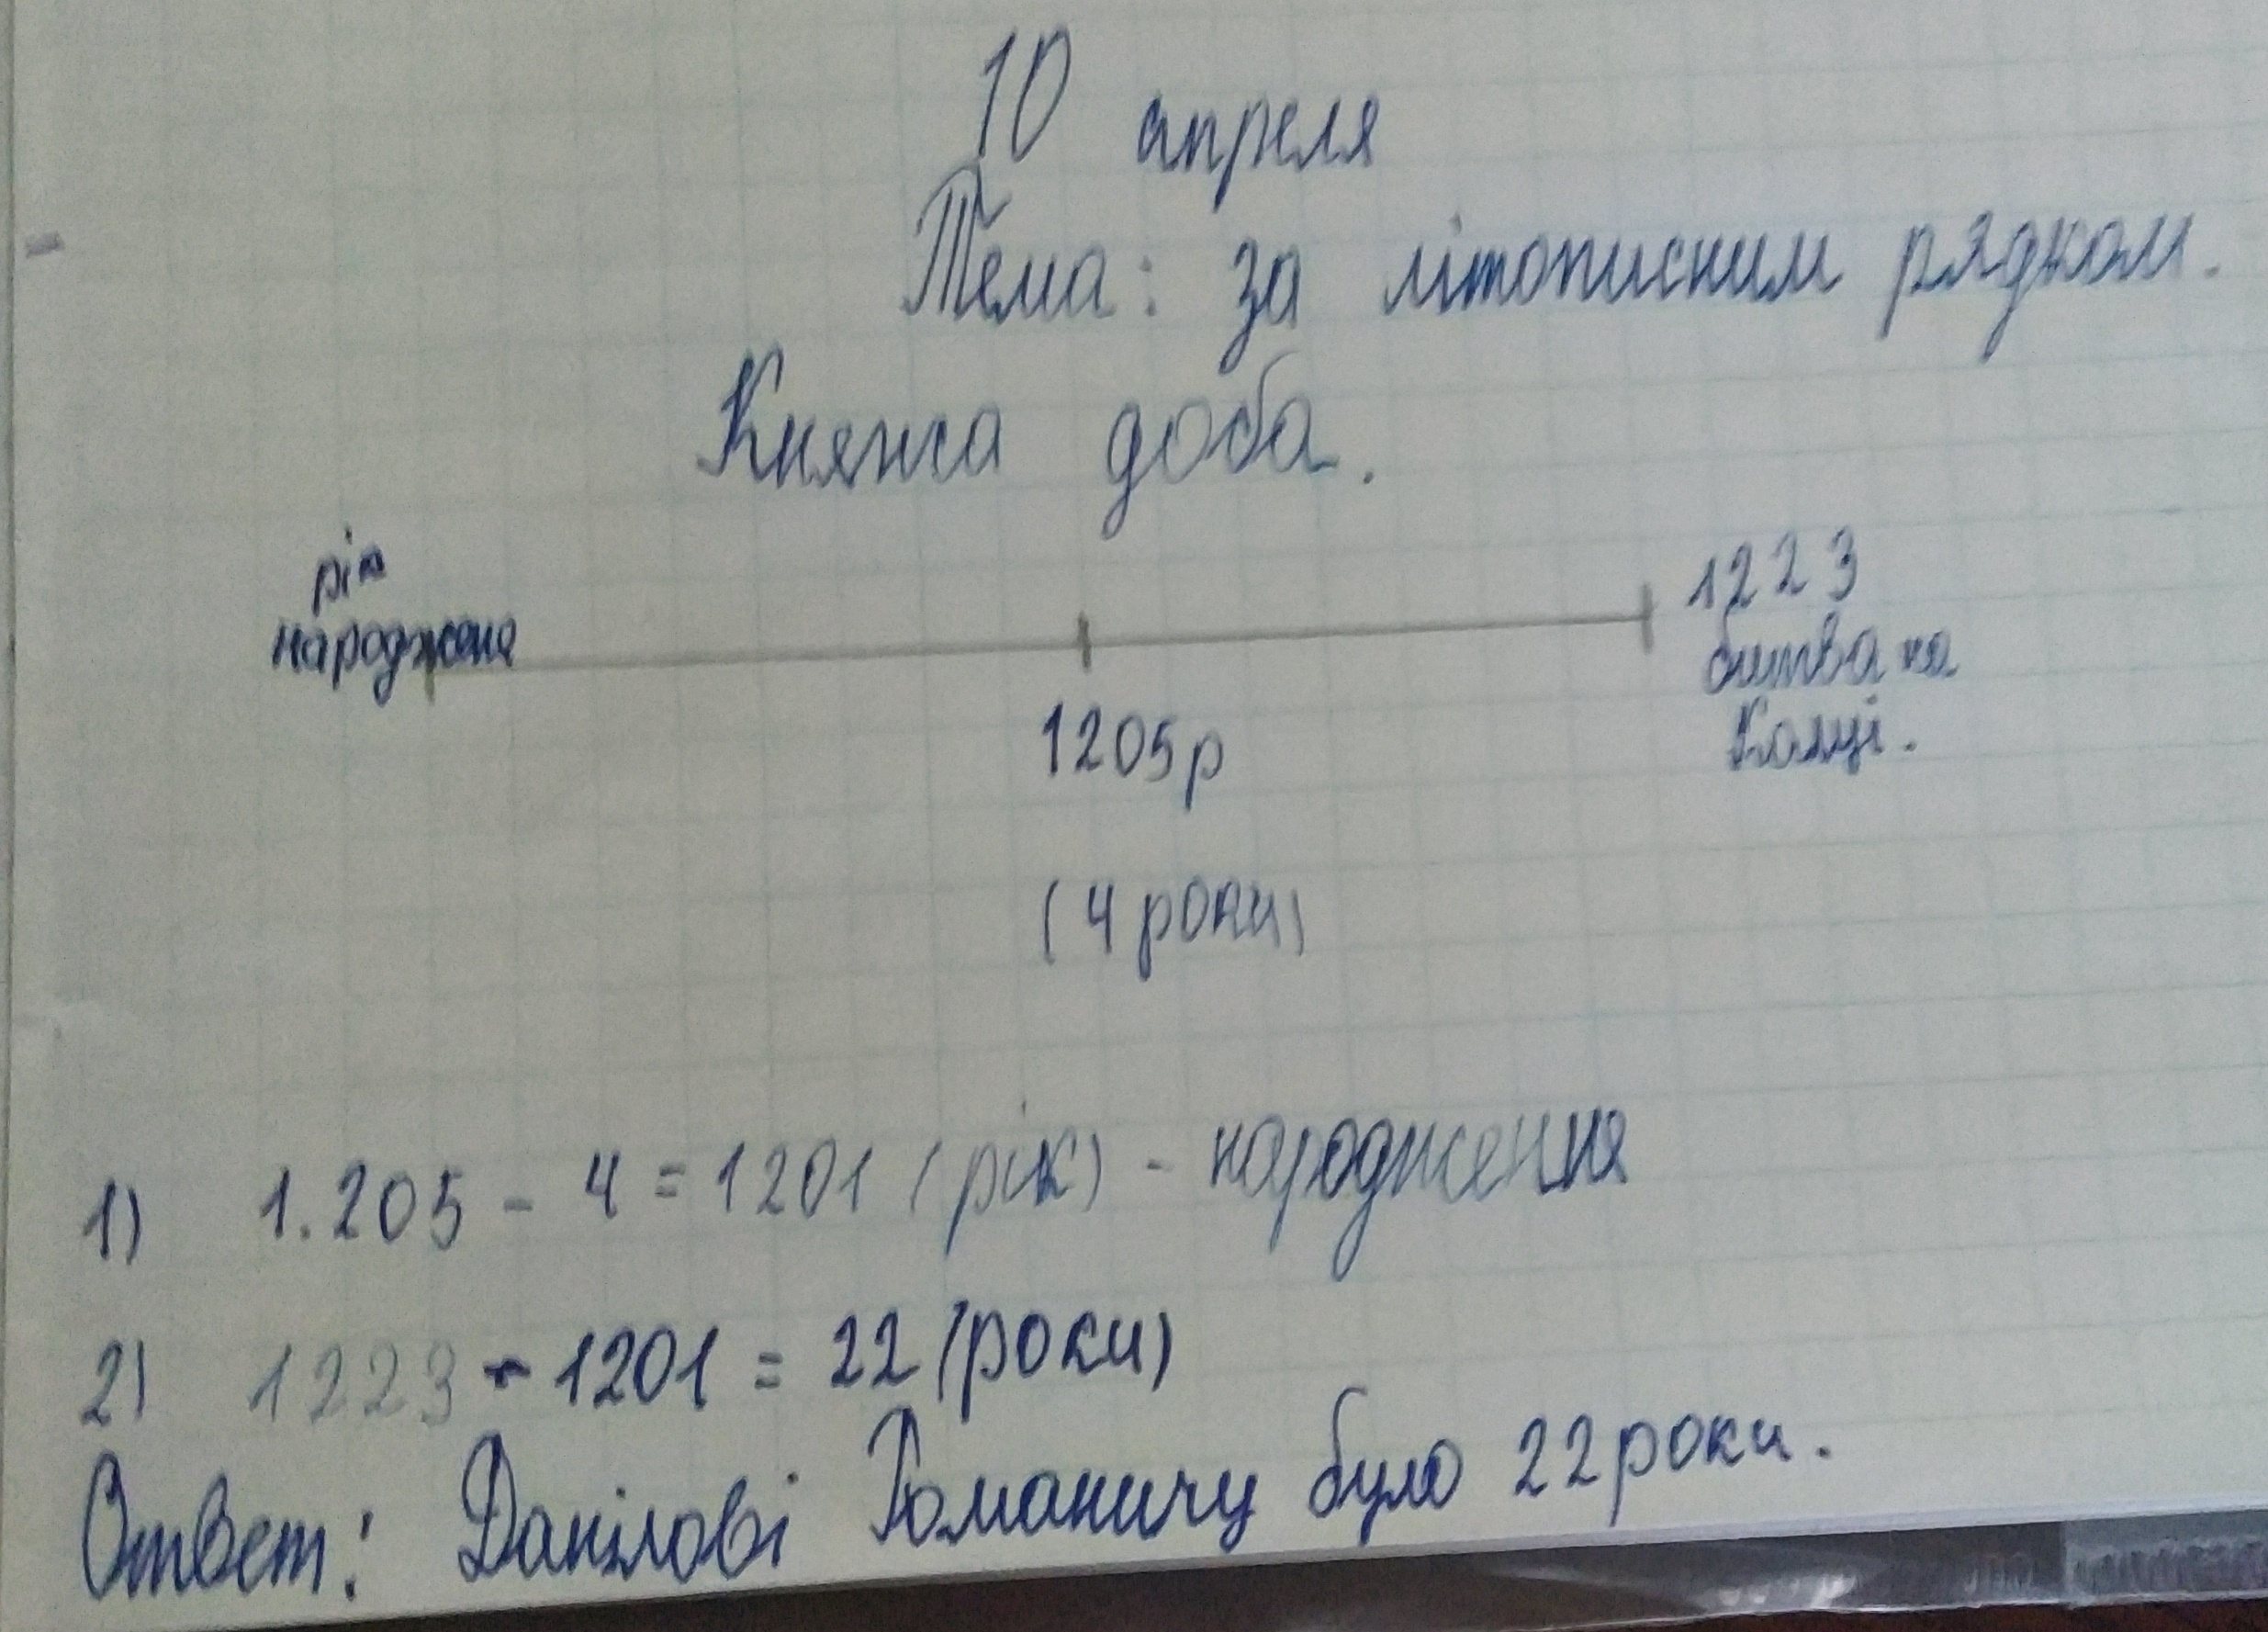 10 апреля
Тема: за літописним рядком.
Княжа доба.
рік
народжене
1223
битва на
Калці.
1205р
(4 роки)
1) 1.205 - 4 = 1201 (рік) - народження
2) 1223 - 1201 = 22 (роки)
Ответ: Данілові Романичу було 22 роки.